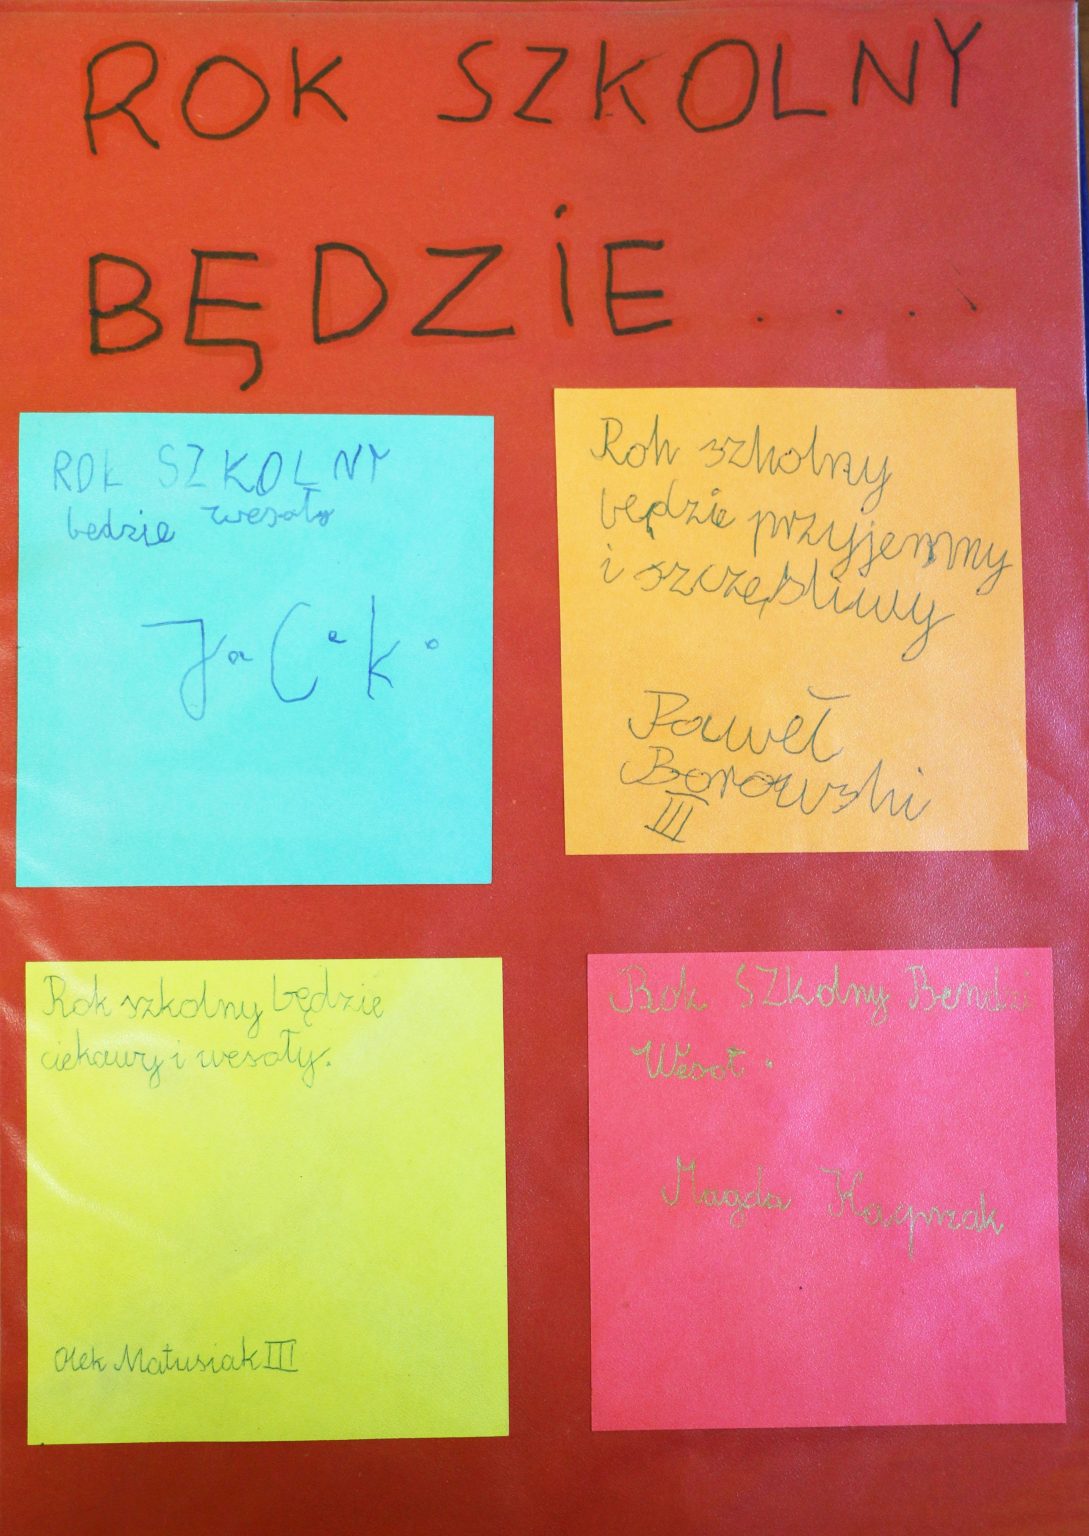 ROK SZKOLNY
BĘDZIE . . . .
ROK SZKOLNY
będzie wesoły
Jacek
Rok szkolny
będzie przyjemny
i szczęśliwy
Paweł
Borowski
III
Rok szkolny będzie
ciekawy i wesoły.
Olek Matusiak III
Rok SZkolny Bendzi
Wesoł.
Magda Kacprzak